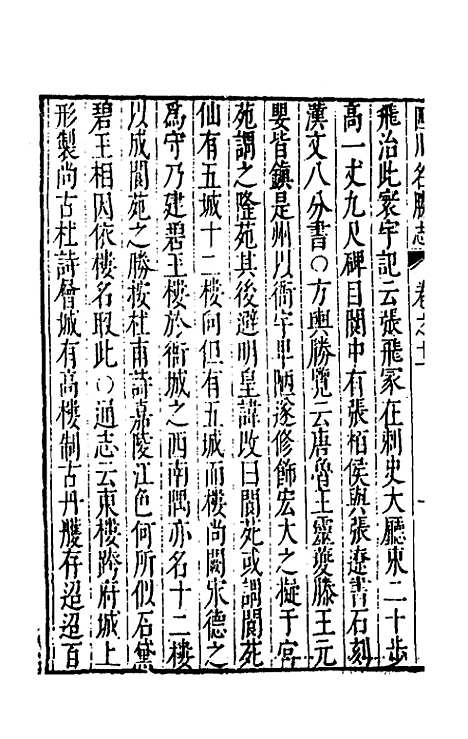 四川名勝志 卷之十一
飛治此寰宇記云張飛冢在刺史大廳東二十步
高一丈九尺碑目閬中有張栢侯與張遼書石刻
漢文八分書○方輿勝覽云唐魯王靈夔滕王元
嬰皆鎮是州以衙宇卑陋遂修飾宏大之擬于宮
苑謂之隆苑其後避明皇諱改曰閬苑或謂閬苑
仙有五城十二樓向但有五城而樓尚闕宋德之
爲守乃建碧玉樓於衙城之西南隅亦名十二樓
以成閬苑之勝按杜甫詩嘉陵江色何所似石黛
碧玉相因依樓名取此○通志云東樓跨府城上
形製尚古杜詩曾城有高樓制古丹雘存迢迢百